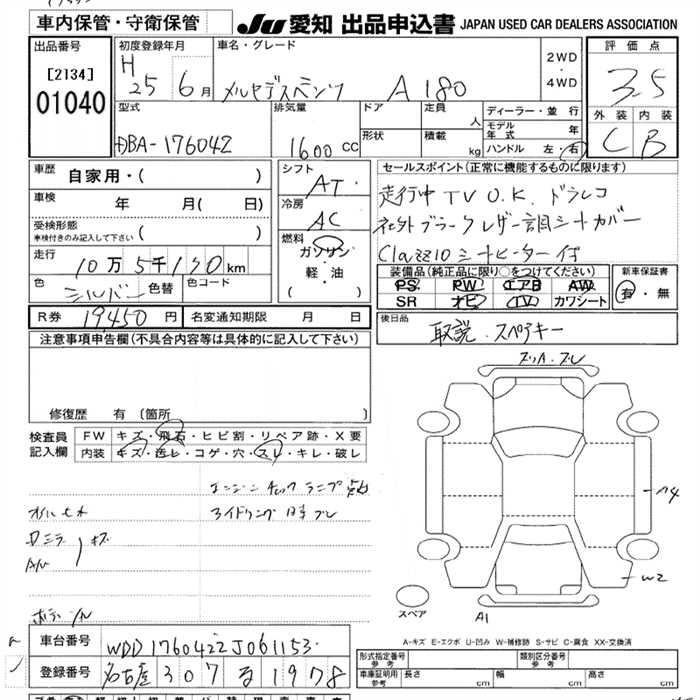 車内保管・守衛保管 JU 愛知 出品申込書 JAPAN USED CAR DEALERS ASSOCIATION
出品番号
[2134]
01040
初度登録年月
H 25 6月
車名・グレード
メルセデスベンツ A180
2WD
・
4WD
評価点
3.5
外装 内装
C B
型式
DBA-176042
排気量
1600 CC
ドア
形状
定員
人
積載
kg
ディーラー・並行
モデル年式 年
ハンドル 左・右
車歴 自家用・( )
車検 年 月( 日)
受検形態
車検付きのみ記入して下さい ( )
走行 10万5千130km
色 シルバー 色替 色コード
シフト AT
冷房 AC
燃料
ガソリン
軽・油
( )
セールスポイント(正常に機能するものに限ります)
走行中TV O.K. ドラレコ
社外ブラックレザー調シートカバー
Clazzio シートヒーター付
装備品(純正品に限り○をつけてください)
PS PW エアB AW
SR ナビ TV カワシート
新車保証書
有・無
R券 19,450円 名変通知期限 月 日
後日品
取説.スペアキー
注意事項申告欄(不具合内容等は具体的に記入して下さい)
修復歴 有 〔箇所 〕
検査員記入欄
FW キズ・飛石・ヒビ割・リペア跡・X要
内装 キズ・汚れ・コゲ・穴・スレ・キレ・破レ
エンジンチェックランプ点灯
アイドリング時ブレ
A4
W2
A1
スペア
A-キズ E-エクボ U-凹み W-補修跡 S-サビ C-腐食 XX-交換済
車台番号 WDD1760422J061153
登録番号 名古屋 307 る 1978
形式指定番号
参考
類別区分番号
参考
車庫証明用
参考
長さ cm
幅 cm
高さ cm